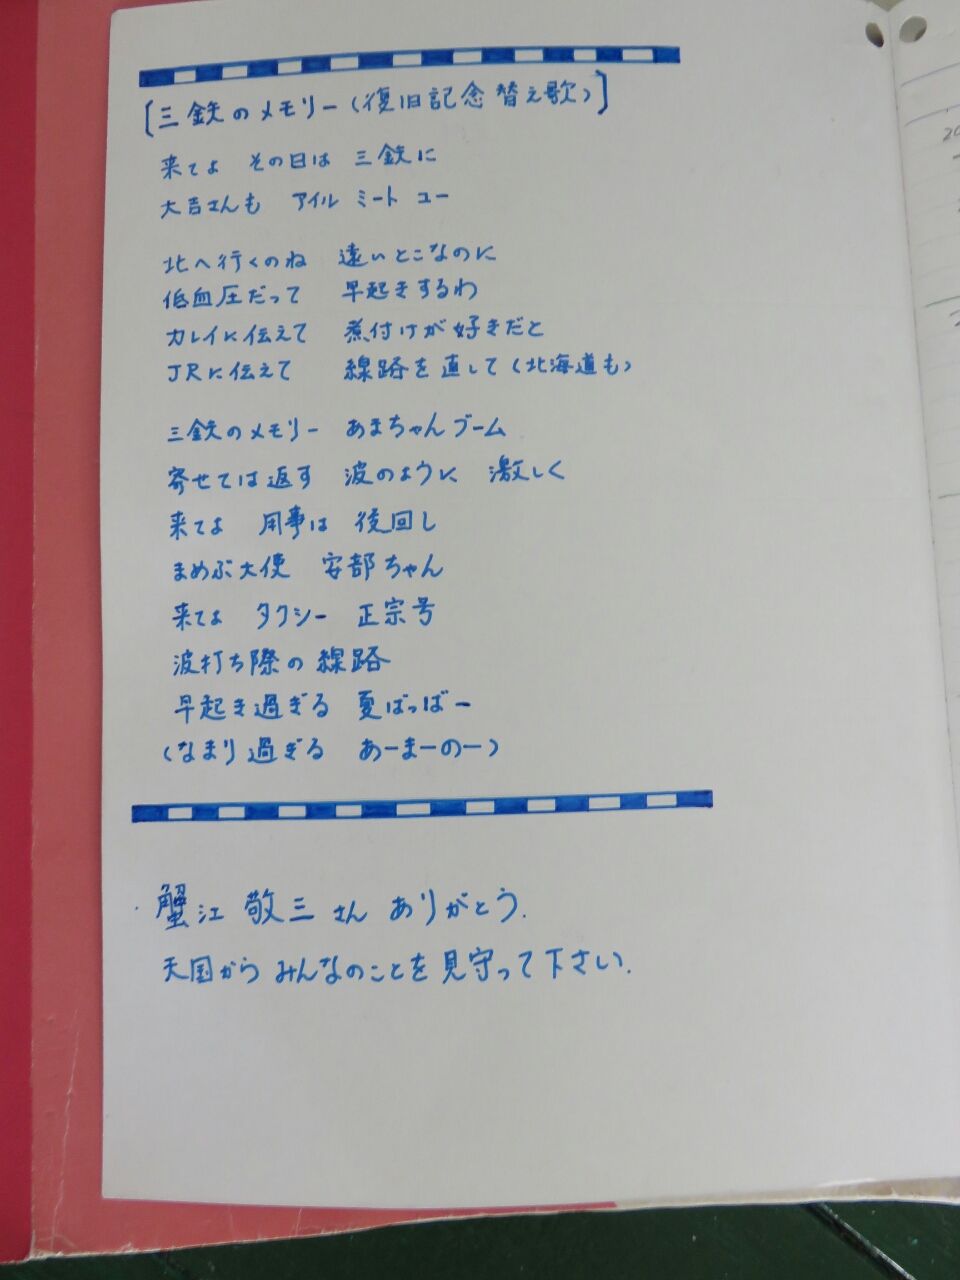 [三鉄のメモリー(復旧記念替え歌)]
来てよ その日は 三鉄に
大吉さんも アイル ミート ユー
北へ行くのね 遠いとこなのに
低血圧だって 早起きするわ
カレイに伝えて 煮付けが好きだと
JRに伝えて 線路を直して(北海道も)
三鉄のメモリー あまちゃんブーム
寄せては返す 波のように 激しく
来てよ 用事は 後回し
まめぶ大使 安部ちゃん
来てよ タクシー 正宗号
波打ち際の線路
早起き過ぎる 夏ばっぱー
(なまり過ぎる あーまーのー)
蟹江 敬三さん ありがとう.
天国から みんなのことを見守って下さい.
20